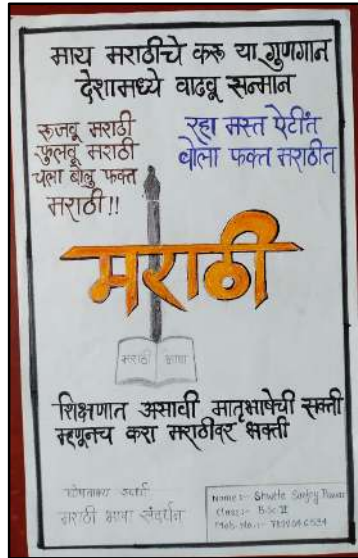 माय मराठीचे करू या गुणगान
देशामध्ये वाढवू सन्मान
रूजवू मराठी
फुलवू मराठी
चला बोलु फक्त
मराठी!!
रहा मस्त ऐटीत
बोला फक्त मराठीत
मराठी
मराठी भाषा
शिक्षणात असावी मातृभाषेची सक्ती
म्हणूनच करा मराठीवर भक्ती
घोषवाक्य स्पर्धा
मराठी भाषा संवर्धन
Name:- Shwete Sanjay Pawar
Class:- B.Sc II
Mob No.:-